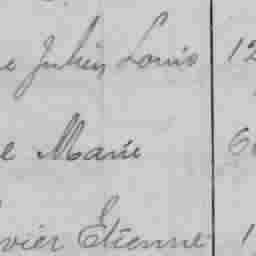 e Julien Louis 12
e Marie 6
vier Etienne 1